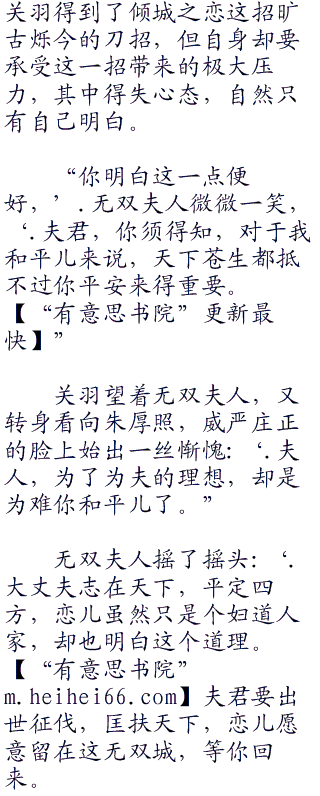 关羽得到了倾城之恋这招旷
古烁今的刀招，但自身却要
承受这一招带来的极大压
力，其中得失心态，自然只
有自己明白。
“你明白这一点便
好，’.无双夫人微微一笑，
‘.夫君，你须得知，对于我
和平儿来说，天下苍生都抵
不过你平安来得重要。
【“有意思书院”更新最
快】”
关羽望着无双夫人，又
转身看向朱厚照，威严庄正
的脸上始出一丝惭愧：‘.夫
人，为了为夫的理想，却是
为难你和平儿了。”
无双夫人摇了摇头：‘.
大丈夫志在天下，平定四
方，恋儿虽然只是个妇道人
家，却也明白这个道理。
【“有意思书院”
m.heihei66.com】夫君要出
世征伐，匡扶天下，恋儿愿
意留在这无双城，等你回
来。